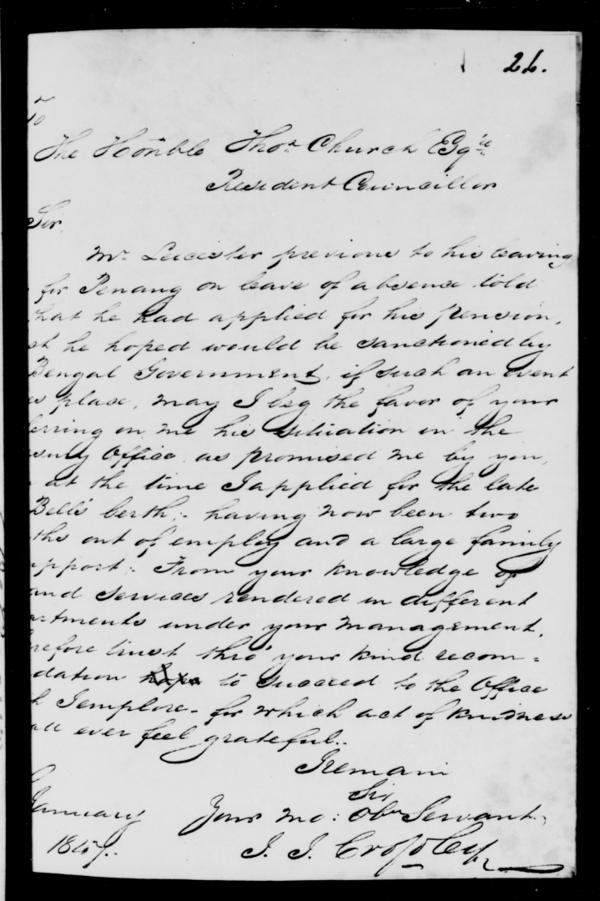 26.
To
The Honble Thos. Church Esqre
Resident Councillor
Sir,
Mr. Leicester previous to his leaving
for Penang on leave of absence told
that he had applied for his pension,
he hoped would be sanctioned by
Bengal Government, if such an event
place, may I beg the favor of your
ferring on me his situation in the
Office, as promised me by you,
at the time I applied for the late
Bells berth: having now been two
ths out of employ and a large family
pport: From your knowledge of
and services rendered in different
artments under your management,
refore trust thro' your kind recom=
dation to succeed to the Office
I implore- for which act of kindness
all ever feel grateful..
I remain
Sir
January Your mo: Obt Servant,
184 J. J. Cropley